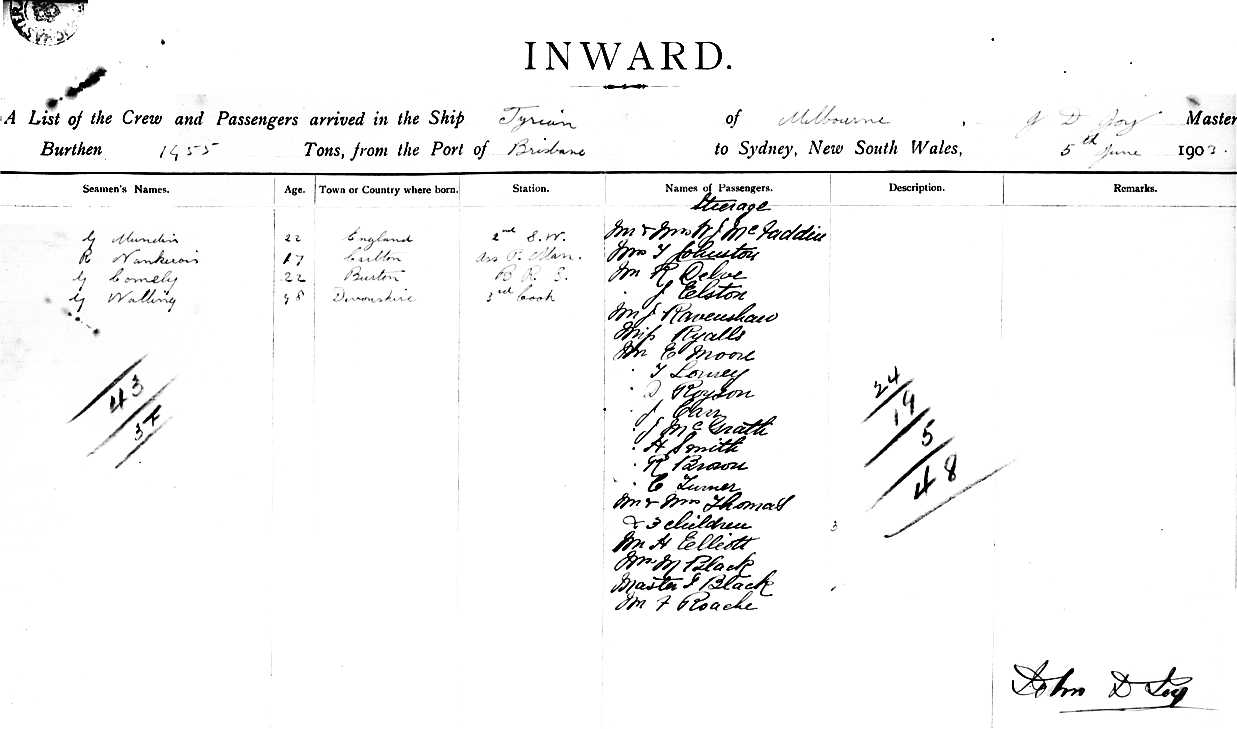 INWARD.
A List of the Crew and Passengers arrived in the Ship Tyrian of Melbourne, J D Joy Master
Burthen 1455 Tons, from the Port of Brisbane to Sydney, New South Wales, 5th June 1903.
Seamen's Names. Age. Town or Country where born. Station. Names of Passengers. Description. Remarks.
Steerage
G Mundin 22 England 2nd S.W. Mr & Mrs W J McFaddin
R 17 Carlton Mrs T Johnston
G Comely 22 Burton B. R. S. Mr R Deloe
G Walling 48 Devonshire 3rd Cook " J Elston
Mr J Ravenshaw
Miss Ryalls
Mr E Moore
" T Lowrey
" Royson
" J Carr
" J McGrath
" H Smith
" R Brown
" C Turner
Mr & Mrs Thomas
& 3 children 3
Mr H Elliott
Mrs M Black
Master F Black
Mr F Roache
43
34
24
19
5
48
John D Joy